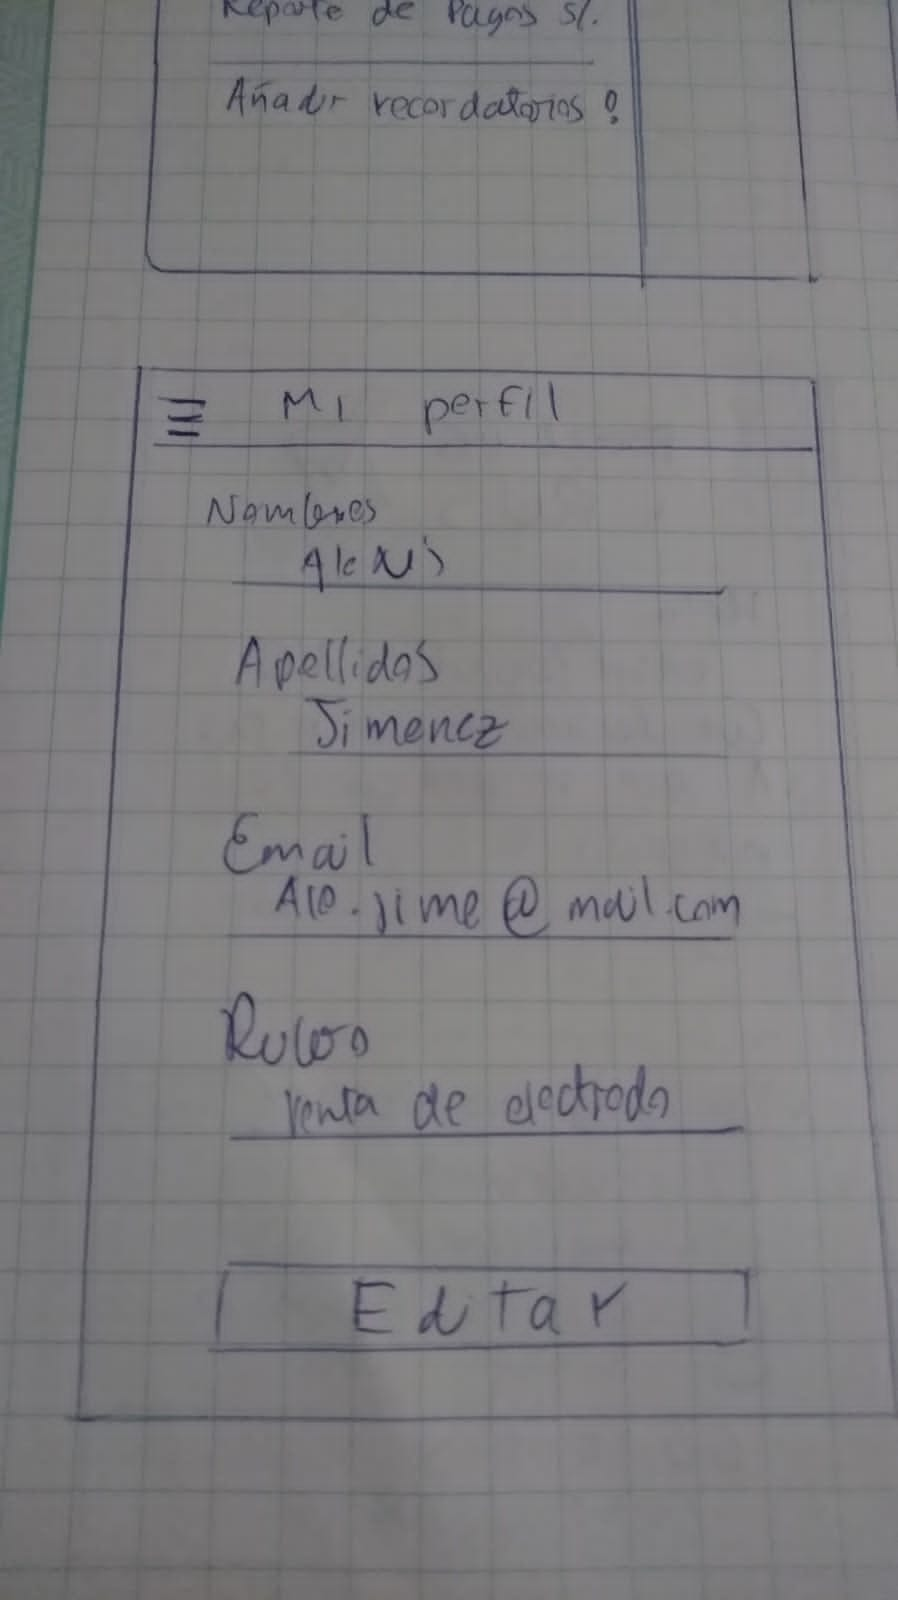 Reporte de Pagos S/.
Añadir recordatorios !
Mi perfil
Nombres
Alexis
Apellidos
Jimenez
Email
Ale.jime@mail.com
Rubro
venta de electrodo
Editar